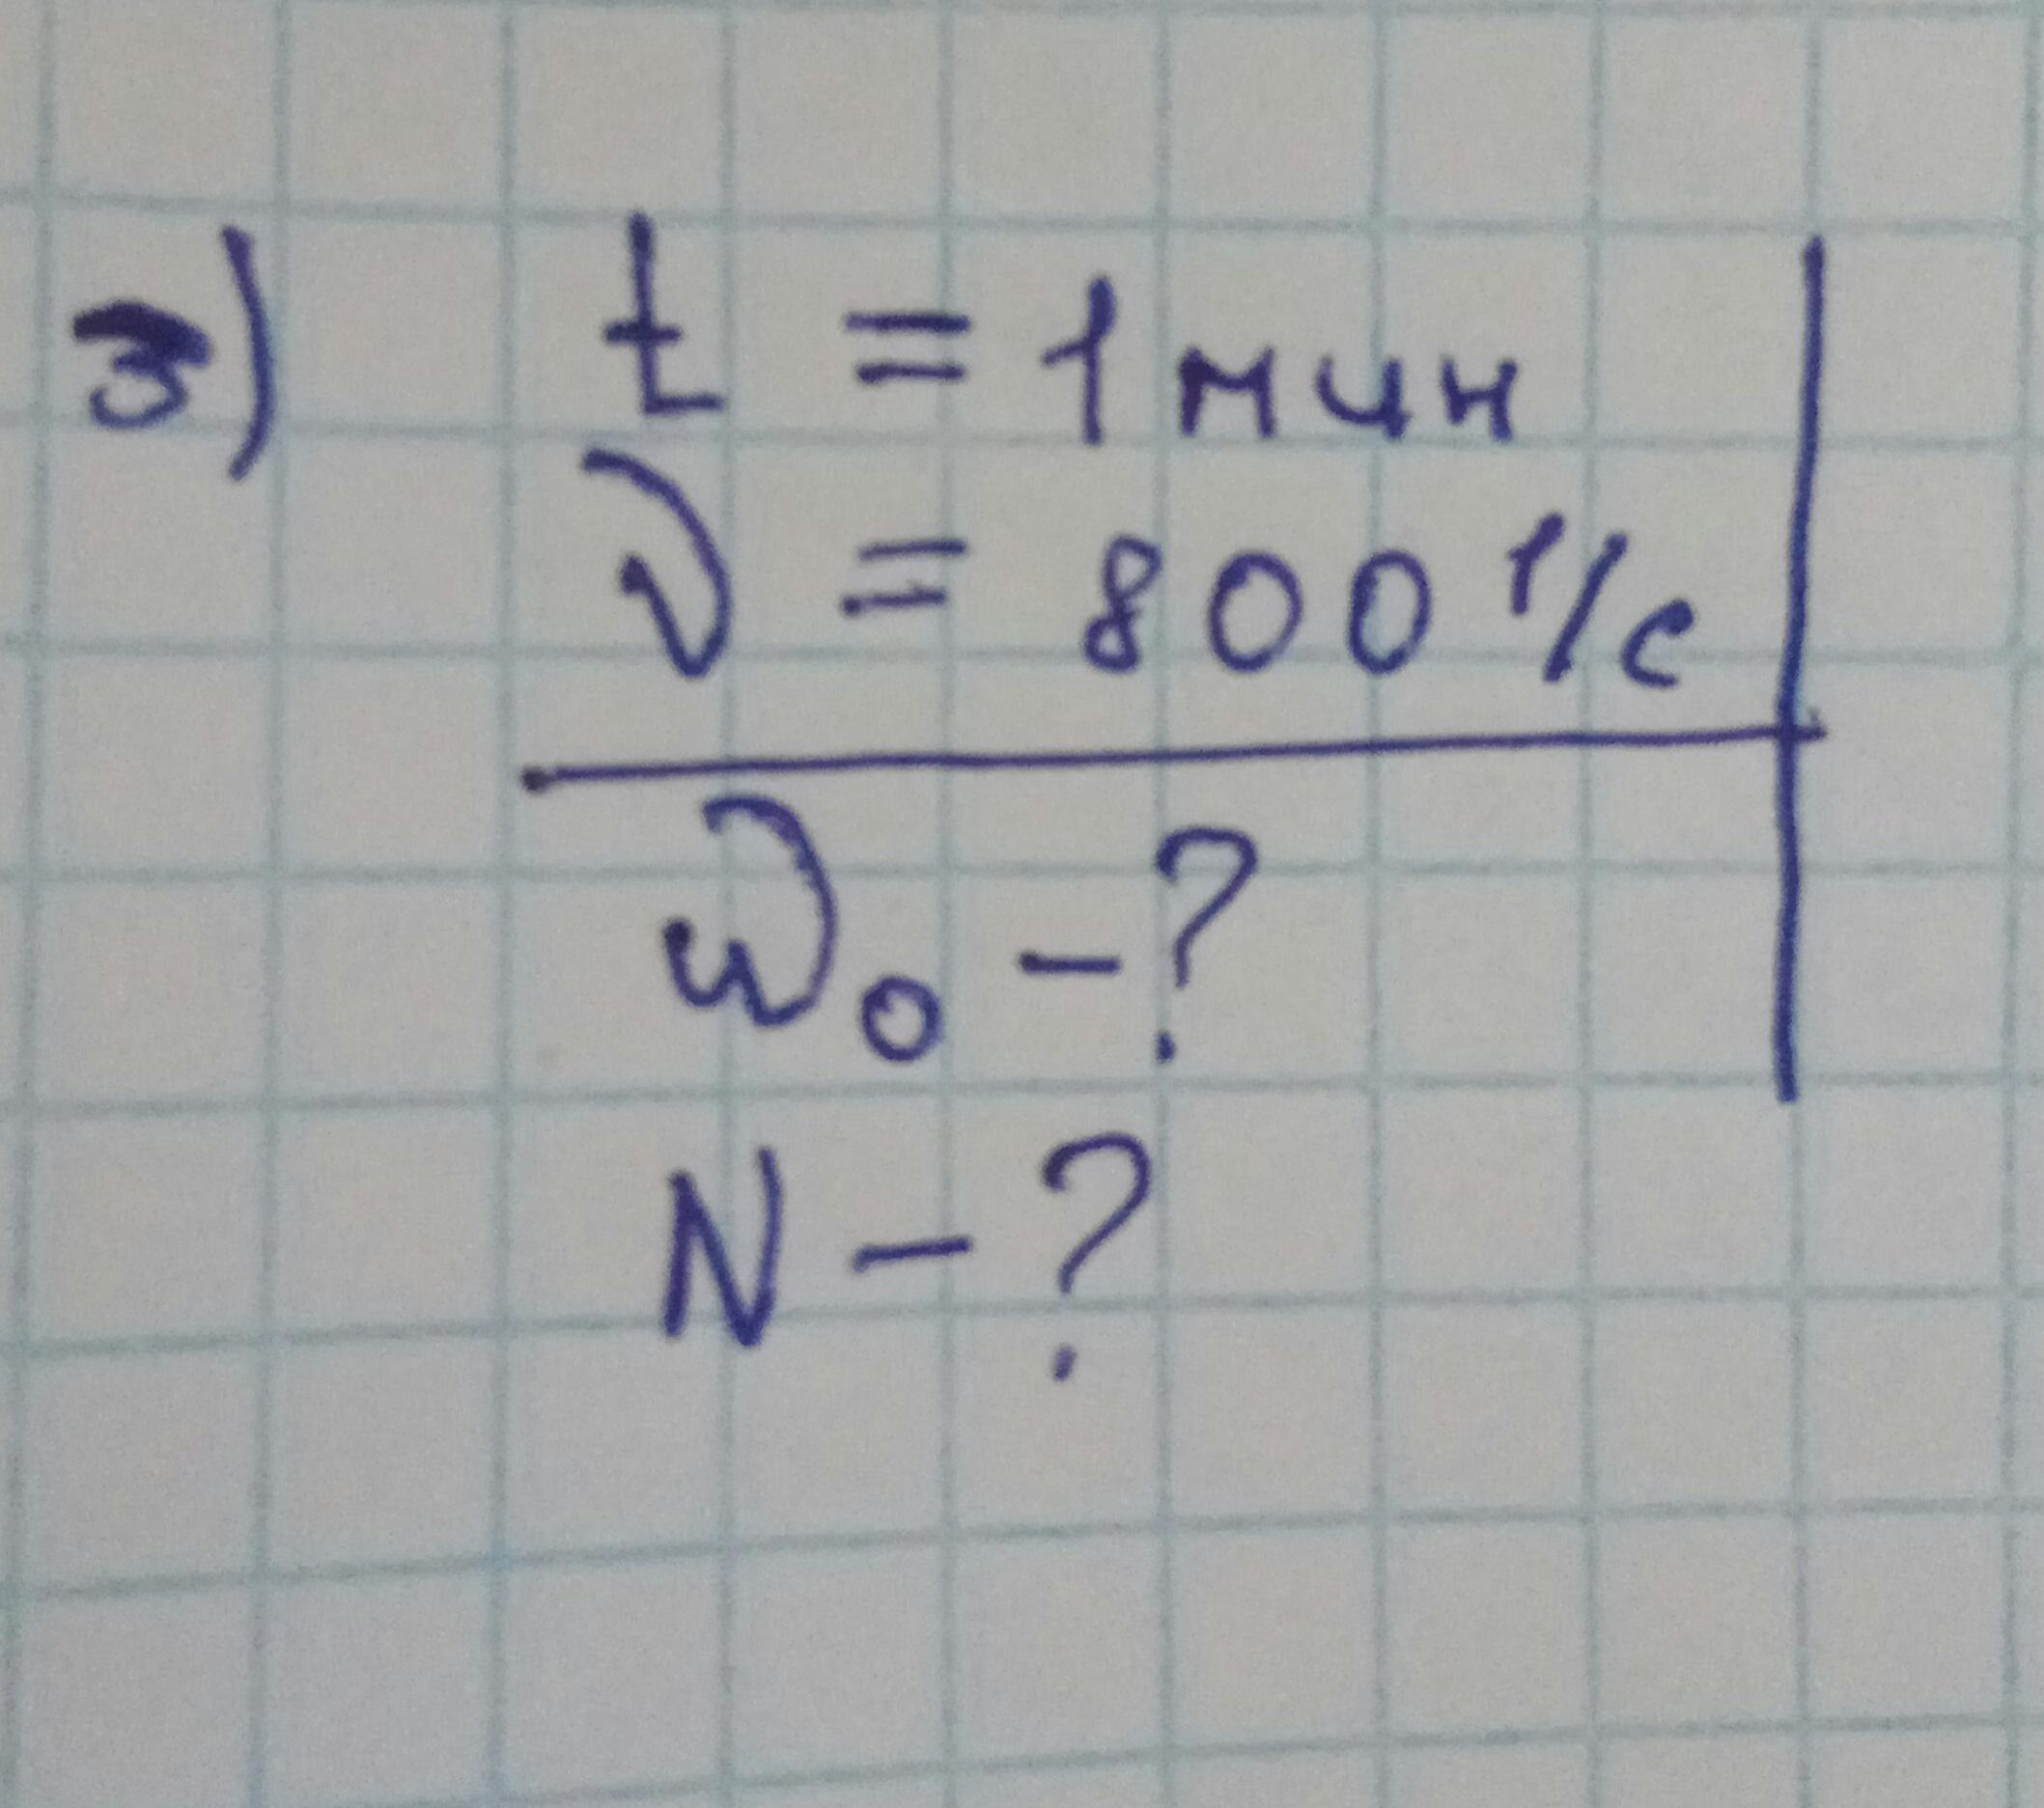 3) t = 1 мин
ν = 800 1/с
ω₀ - ?
N - ?